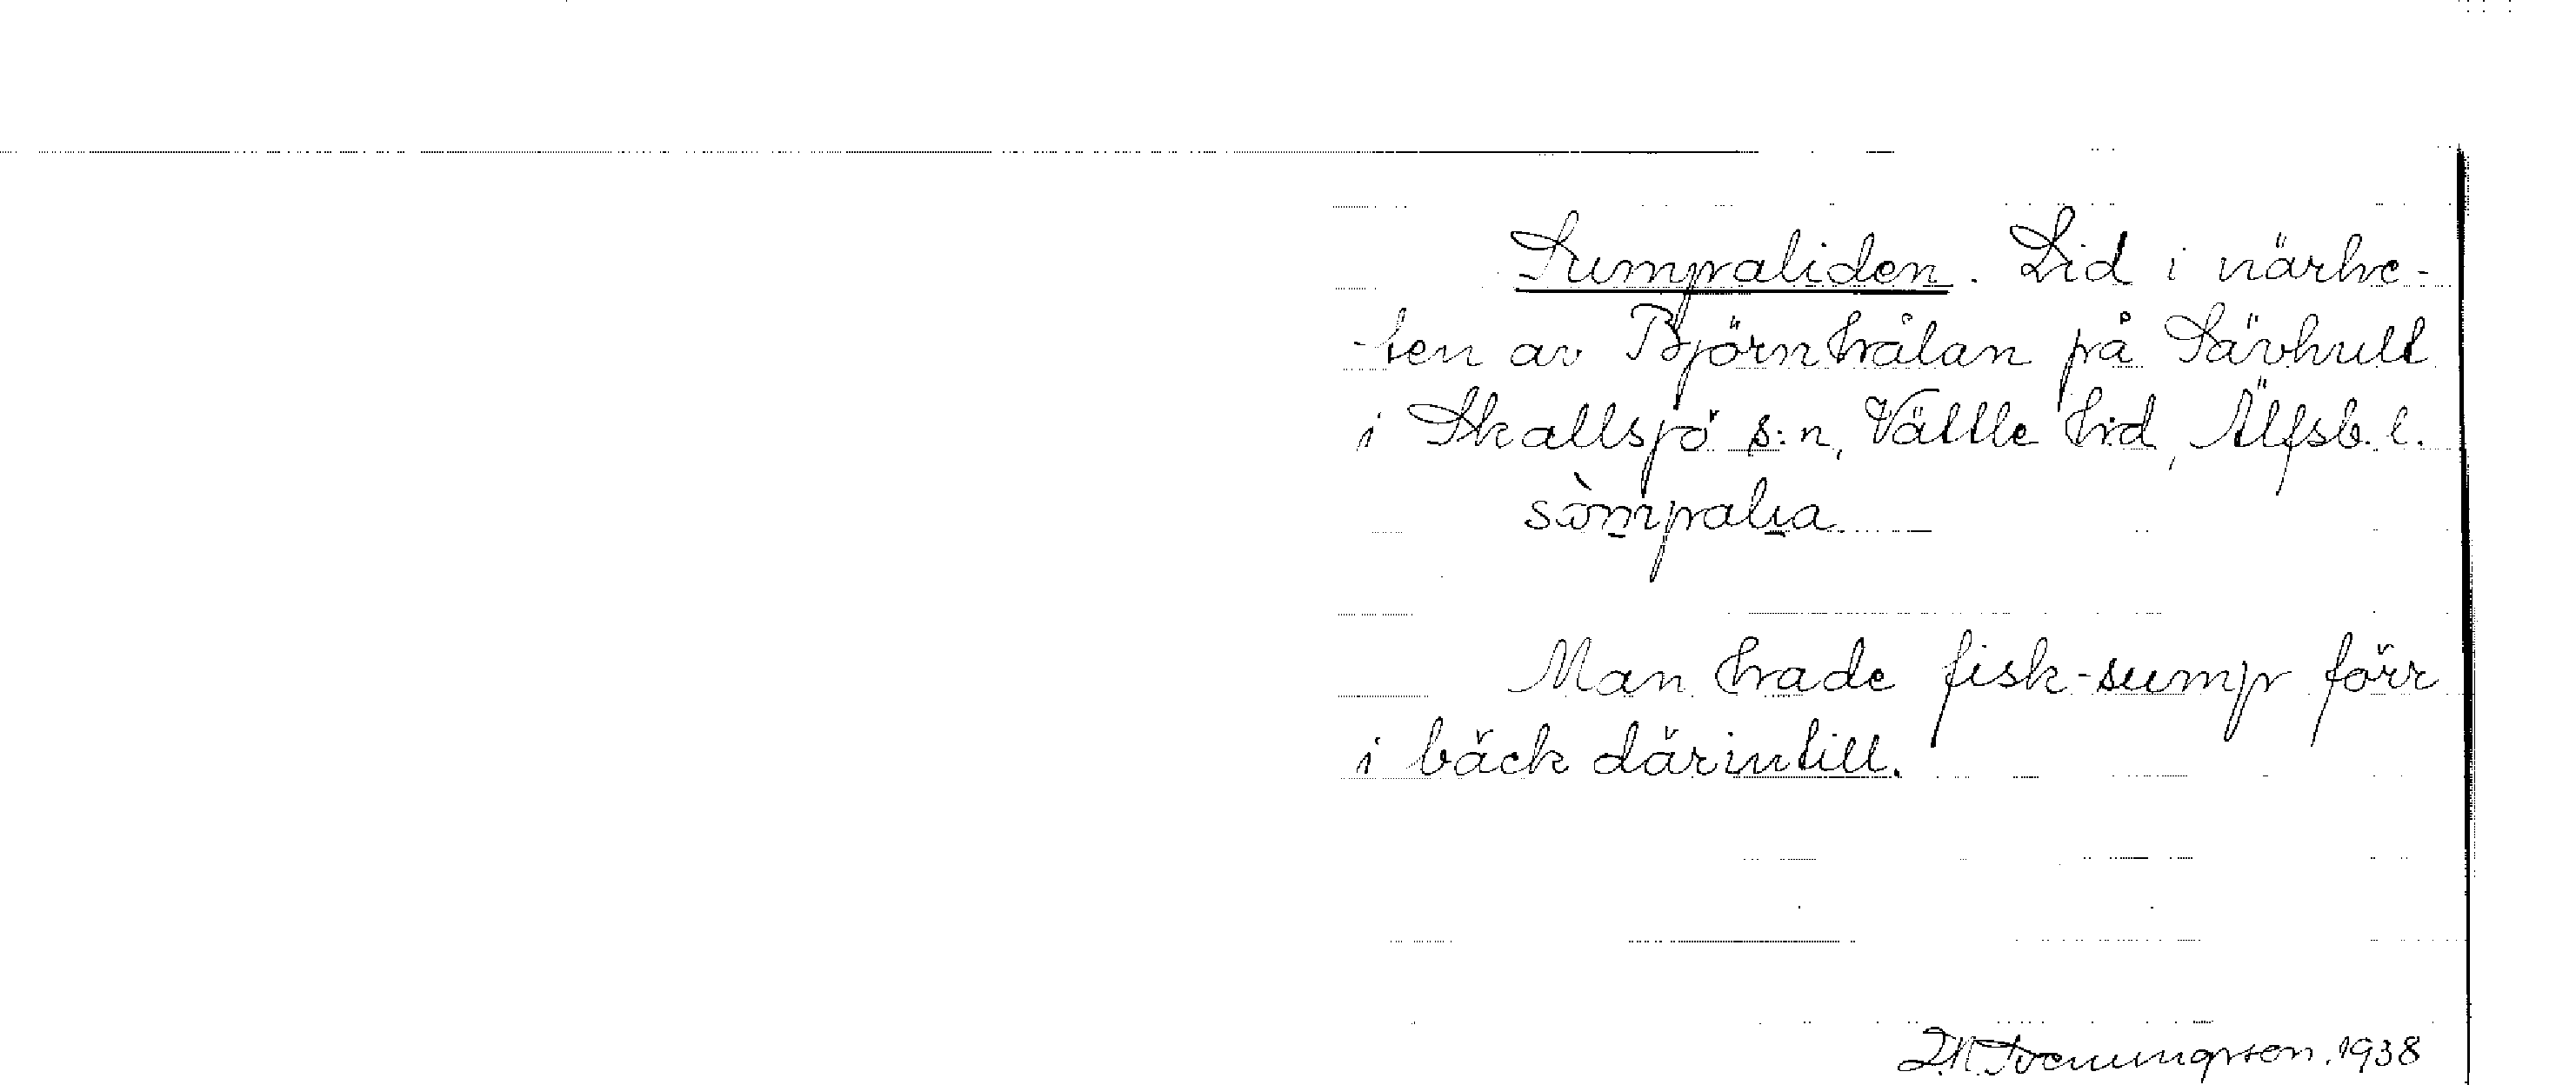 Sumpaliden. Lid i närhe-
-ten av Björnhålan på Sävhult
i Skallsjö s:n, Vättle hd, Älfsb. l.
sòmpalia
Man hade fisk-sump förr
i bäck därintill.
1938